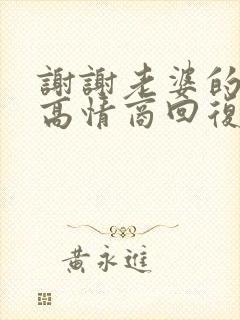 謝謝老婆的
高情商回復
黃永進